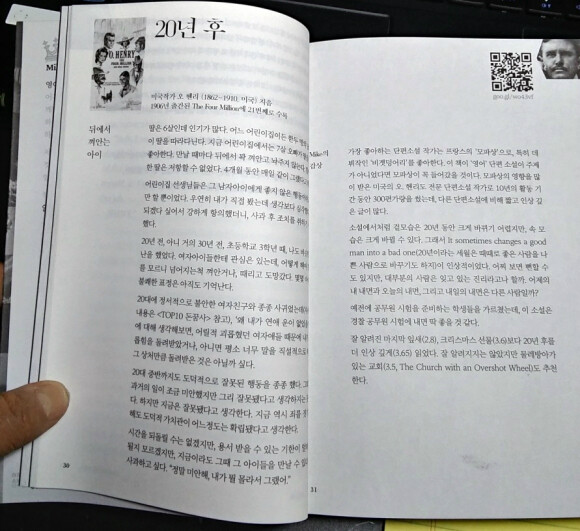 20년 후
O. HENRY
THE FOUR MILLION
미국작가 오 헨리 (1862~1910, 미국) 지음
1906년 출간된 The Four Million에 21번째로 수록
뒤에서
껴안는
아이
딸은 6살인데 인기가 많다. 어느 어린이집이든 한두 명의
이 딸을 따라다닌다. 지금 어린이집에서는 7살 오빠가
좋아한다. 만날 때마다 뒤에서 꽉 껴안고 놔주지 않는다.
한 딸은 저항할 수 없었다. 4개월 동안 매일 같이 그랬다.
어린이집 선생님들은 그 남자아이에게 좋지 않은 행동이라
만 할 뿐이었다. 우연히 내가 직접 봤는데 생각보다
되겠다 싶어서 강하게 항의했더니, 사과 후 조치를
했다.
20년 전, 아니 거의 30년 전, 초등학교 3학년 때, 나도
난을 했었다. 여자아이들한테 관심은 있는데, 어떻게
를 모르니 넘어지는 척 껴안거나, 때리고 도망갔다.
불쾌한 표정은 아직도 기억난다.
20대에 정서적으로 불안한 여자친구와 종종 사귀었는데
내용은 <TOP10 돈꿈사> 참고), '왜 내가 연애 운이
에 대해 생각해보면, 어릴적 괴롭혔던 여자애들 때문에
롭힘을 돌려받았거나, 아니면 평소 너무 말을 직설적으로
그 상처만큼 돌려받은 것은 아닐까 싶다.
20대 중반까지도 도덕적으로 잘못된 행동을 종종 했다.
과거의 일이 조금 미안했지만 그리 잘못됐다고 생각하지는
다. 하지만 지금은 잘못됐다고 생각한다. 지금 역시 죄를
해도 도덕적 가치관이 어느정도는 확립됐다고 생각한다.
시간을 되돌릴 수는 없겠지만, 용서 받을 수 있는 기한이
될지 모르겠지만, 지금이라도 그때 그 아이들을 만날 수
사과하고 싶다. "정말 미안해, 내가 뭘 몰라서 그랬어."
30
goo.gl/
Mike의
감상
가장 좋아하는 단편소설 작가는 프랑스의 '모파상'으로, 특히 데
뷔작인 '비곗덩어리'를 좋아한다. 이 책이 '영어' 단편 소설이 주제
가 아니었다면 모파상이 꼭 들어갔을 것이다. 모파상의 영향을 많
이 받은 미국의 오. 헨리도 전문 단편소설 작가로 10년의 활동 기
간 동안 300편가량을 썼는데, 다른 단편소설에 비해 짧고 인상 깊
은 글이 많다.
소설에서처럼 겉모습은 20년 동안 크게 바뀌기 어렵지만, 속 모
습은 크게 바뀔 수 있다. 그래서 It sometimes changes a good
man into a bad one(20년이라는 세월은 때때로 좋은 사람을 나
쁜 사람으로 바꾸기도 하지)이 인상적이었다. 어찌 보면 뻔할 수
도 있지만, 대부분의 사람은 잊고 있는 진리라고나 할까. 어제의
내 내면과 오늘의 내면, 그리고 내일의 내면은 다른 사람일까?
예전에 공무원 시험을 준비하는 학생들을 가르쳤는데, 이 소설은
경찰 공무원 시험에 내면 딱 좋을 것 같다.
잘 알려진 마지막 잎새(2.8), 크리스마스 선물(3.6)보다 20년 후를
더 인상 깊게(3.65) 읽었다. 잘 알려지지는 않았지만 물레방아가
있는 교회(3.5, The Church with an Overshot Wheel)도 추천
한다.
31